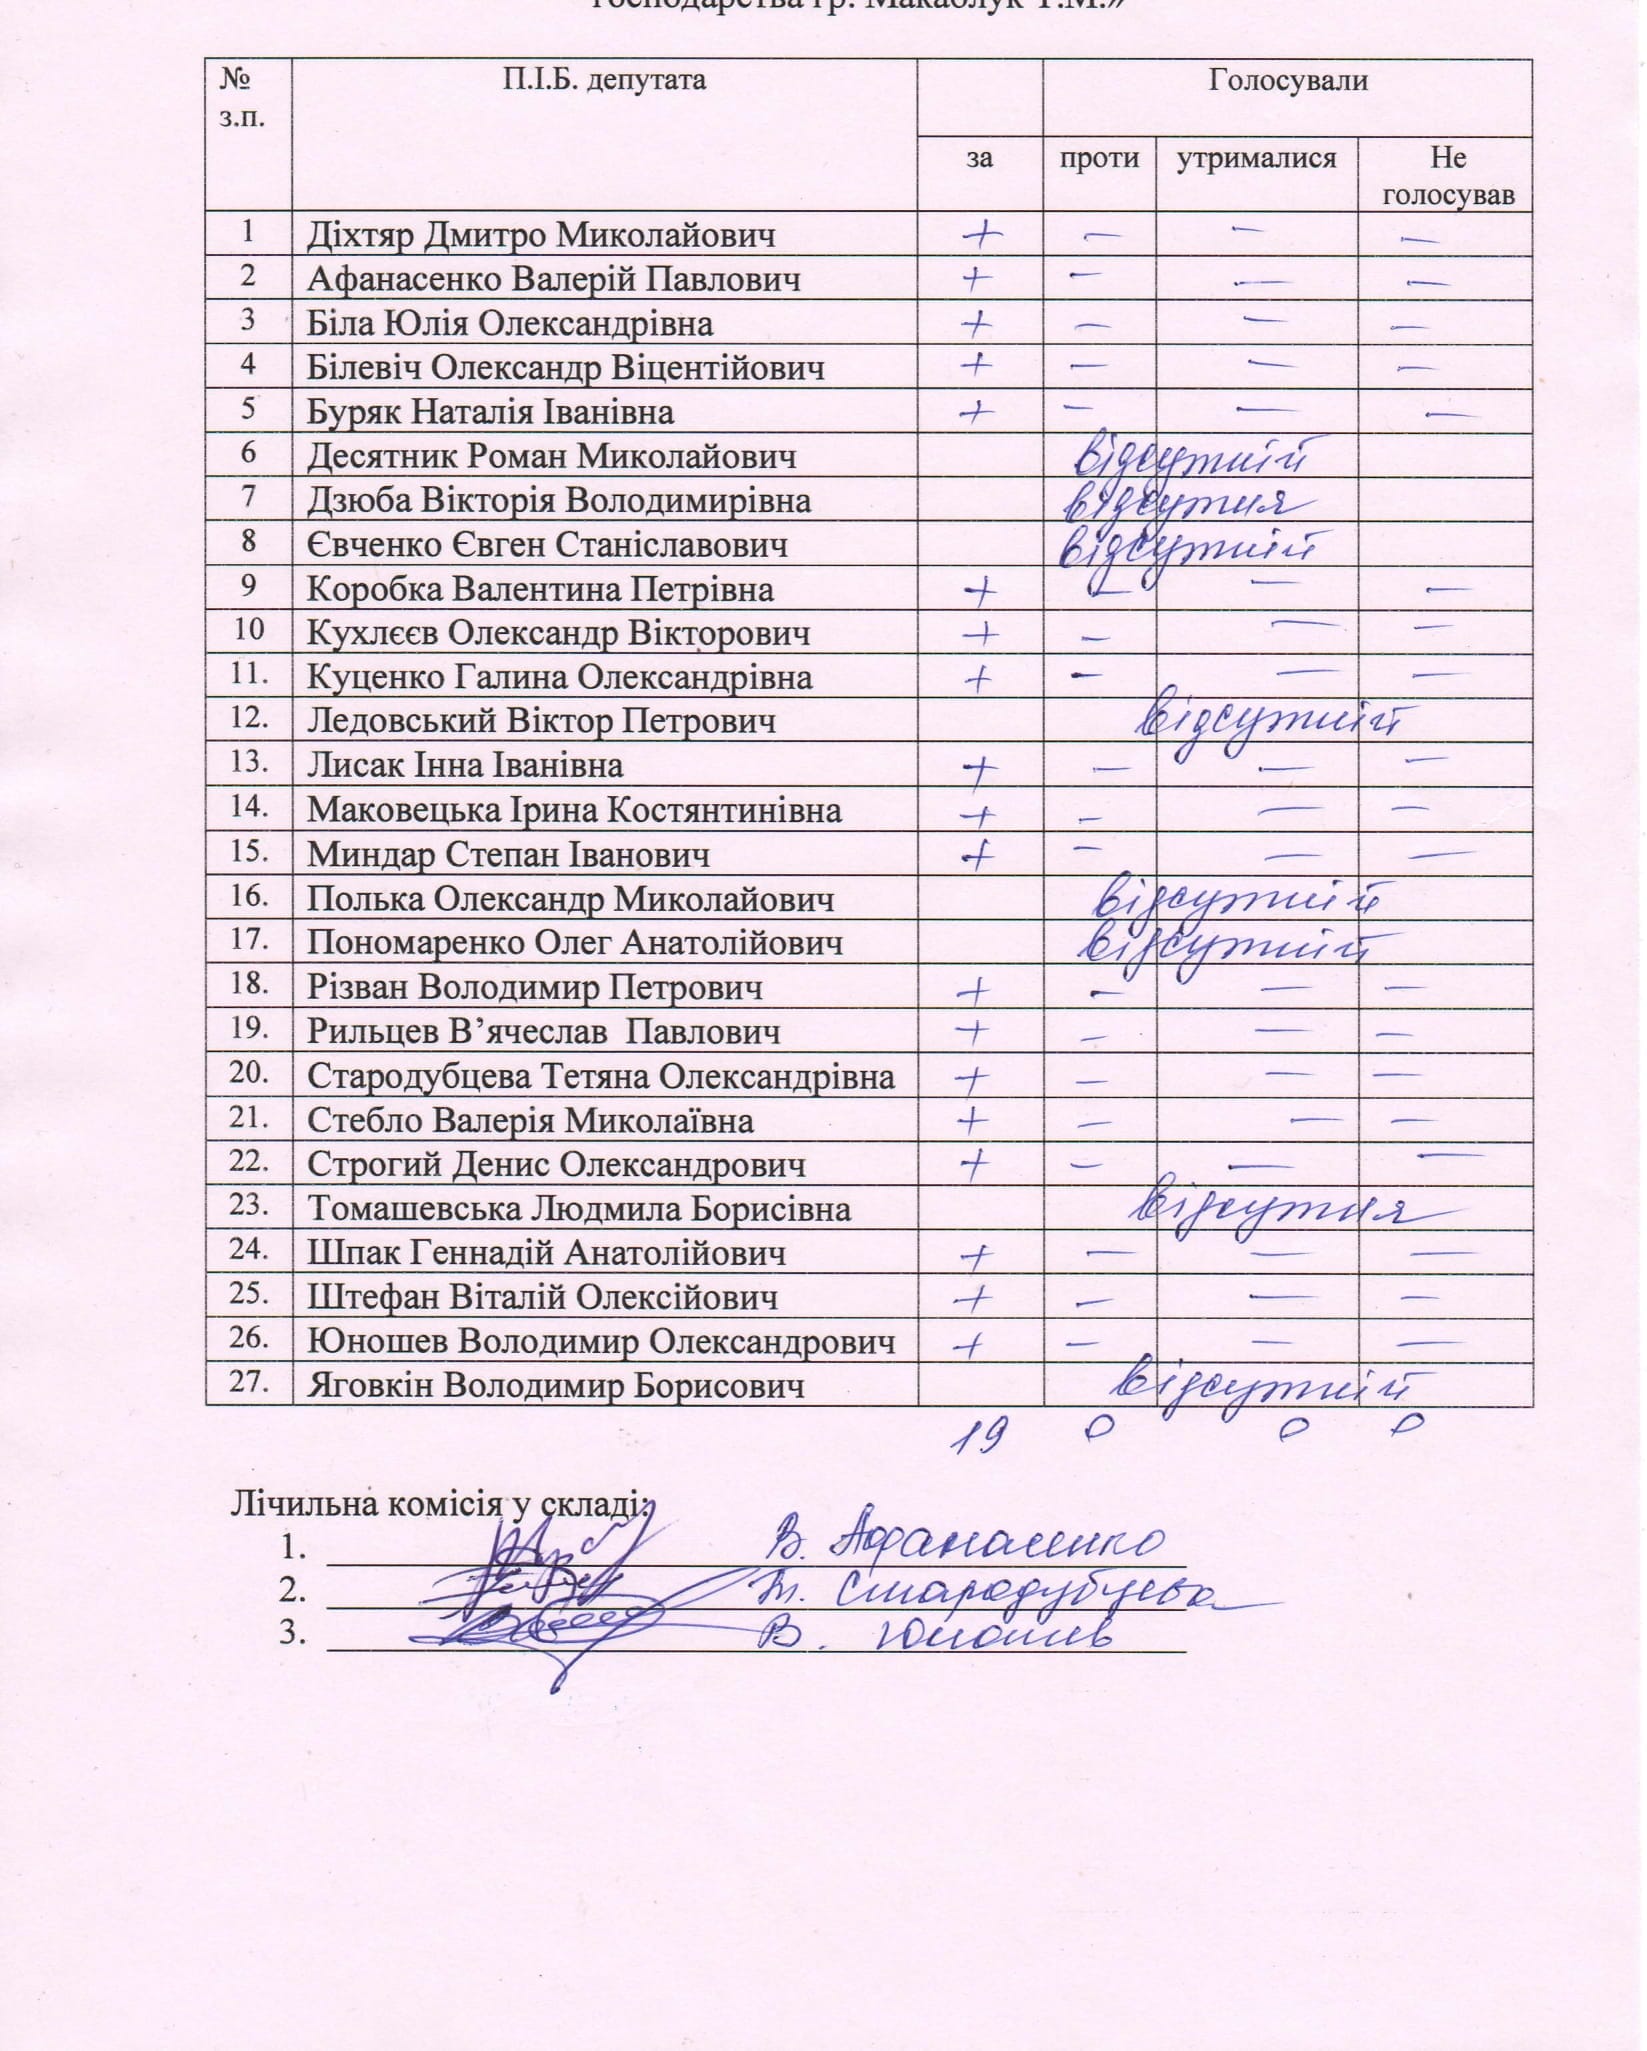 господарства гр. Макаолук Т.М.»
№ П.І.Б. депутата Голосували
з.п.
за проти утрималися Не
голосував
1 Діхтяр Дмитро Миколайович + — — —
2 Афанасенко Валерій Павлович + — — —
3 Біла Юлія Олександрівна + — — —
4 Білевіч Олександр Віцентійович + — — —
5 Буряк Наталія Іванівна + — — —
6 Десятник Роман Миколайович відсутній
7 Дзюба Вікторія Володимирівна відсутня
8 Євченко Євген Станіславович відсутній
9 Коробка Валентина Петрівна + — — —
10 Кухлєєв Олександр Вікторович + — — —
11. Куценко Галина Олександрівна + — — —
12. Ледовський Віктор Петрович відсутній
13. Лисак Інна Іванівна + — — —
14. Маковецька Ірина Костянтинівна + — — —
15. Миндар Степан Іванович + — — —
16. Полька Олександр Миколайович відсутній
17. Пономаренко Олег Анатолійович відсутній
18. Різван Володимир Петрович + — — —
19. Рильцев В’ячеслав Павлович + — — —
20. Стародубцева Тетяна Олександрівна + — — —
21. Стебло Валерія Миколаївна + — — —
22. Строгий Денис Олександрович + — — —
23. Томашевська Людмила Борисівна відсутня
24. Шпак Геннадій Анатолійович + — — —
25. Штефан Віталій Олексійович + — — —
26. Юношев Володимир Олександрович + — — —
27. Яговкін Володимир Борисович відсутній
19 0 0 0
Лічильна комісія у складі:
1. В. Афанасенко
2. Т. Стародубцева
3. В. Юношев